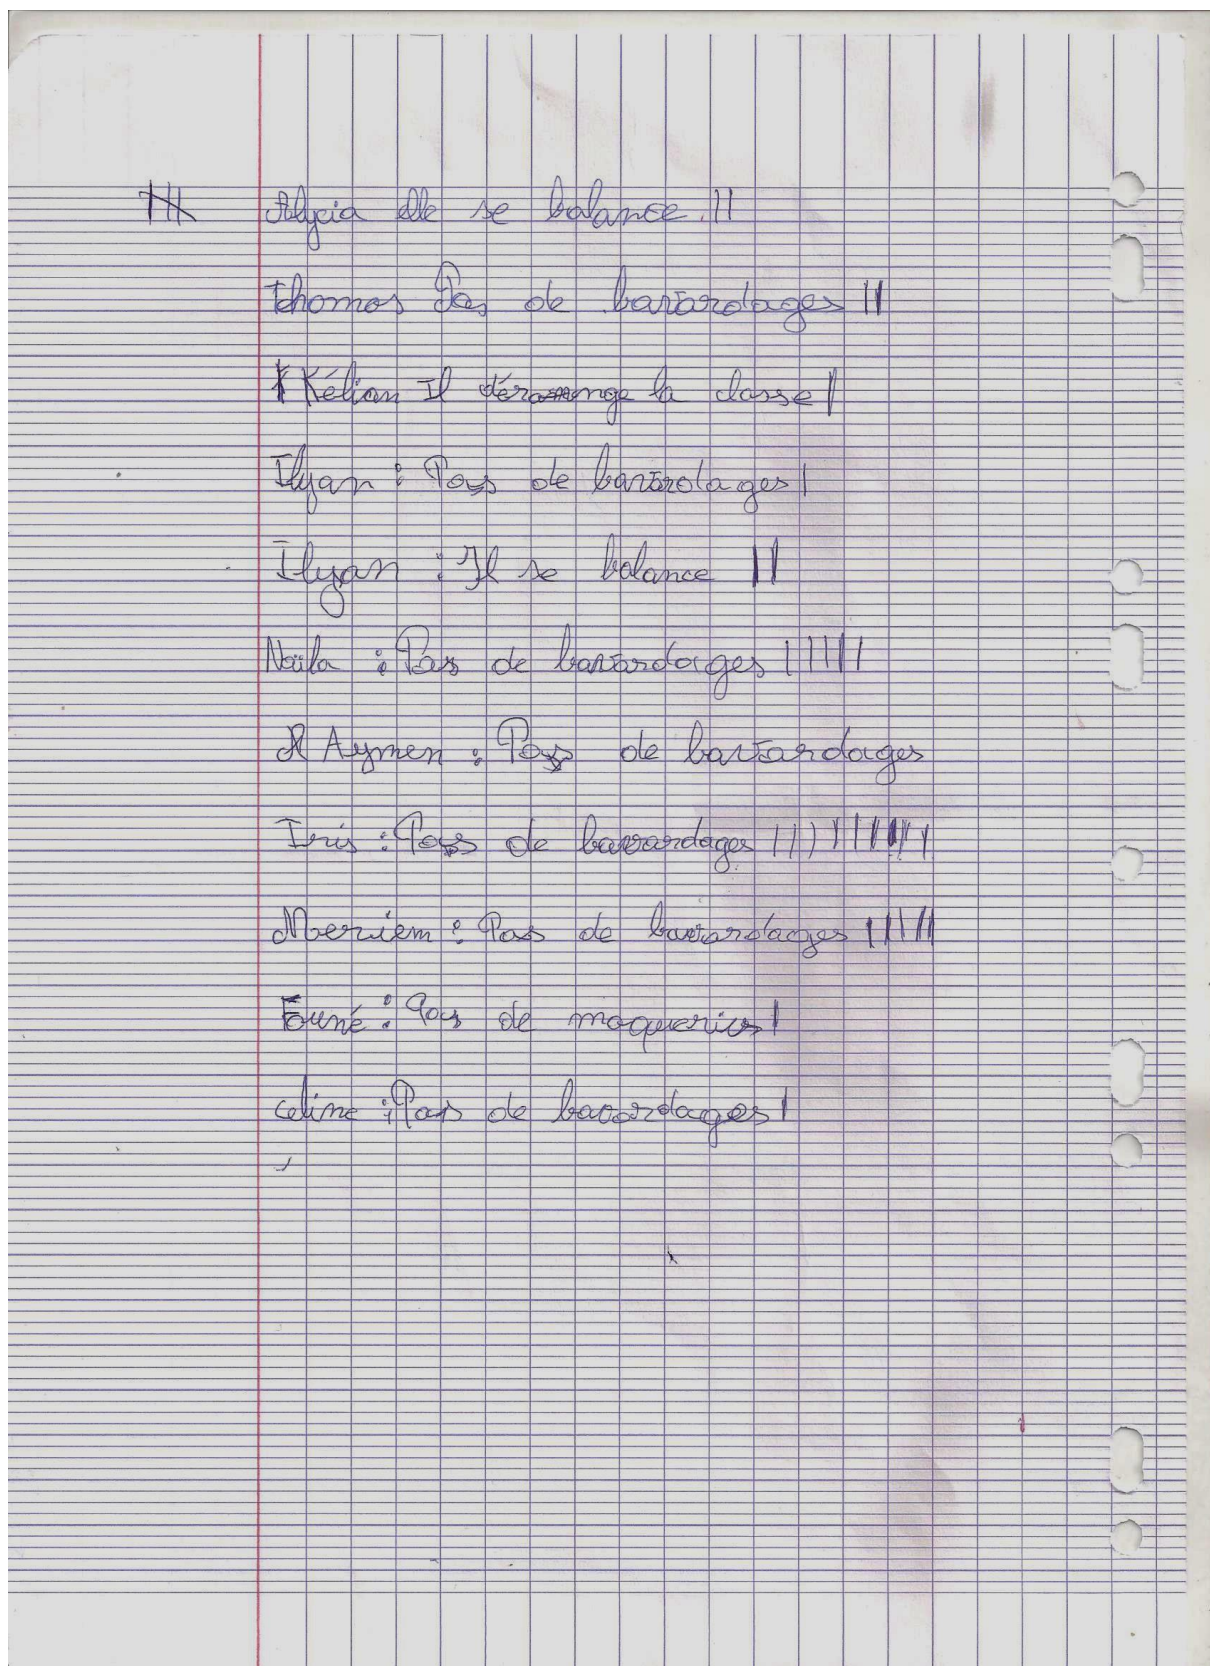 Alycia elle se balance. ||
Thomas Pas de bavardages ||
Kélian Il déramange la classe |
Ilyan : Pas de bavardages |
Ilyan : Il se balance ||
Naïla : Pas de bavardages ||||||
Aymen : Pas de bavardages
Iris : Pas de bavardages ||||||||||
Meriem : Pas de bavardages |||||
Founé : Pas de moqueries |
celine : Pas de bavardages |